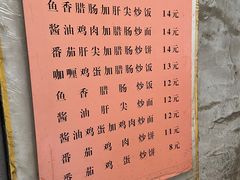 鱼香腊肠加肝尖炒饭 14元
酱油鸡肉加腊肠炒面 14元
番茄肝尖加腊肠炒饼 14元
咖喱鸡蛋加鸡肉炒饭 13元
鱼香腊肠炒饭 12元
酱油肝尖炒面 12元
酱油鸡蛋鸡肉炒面 12元
番茄鸡肉炒饼 11元
番茄鸡蛋炒饼 8元